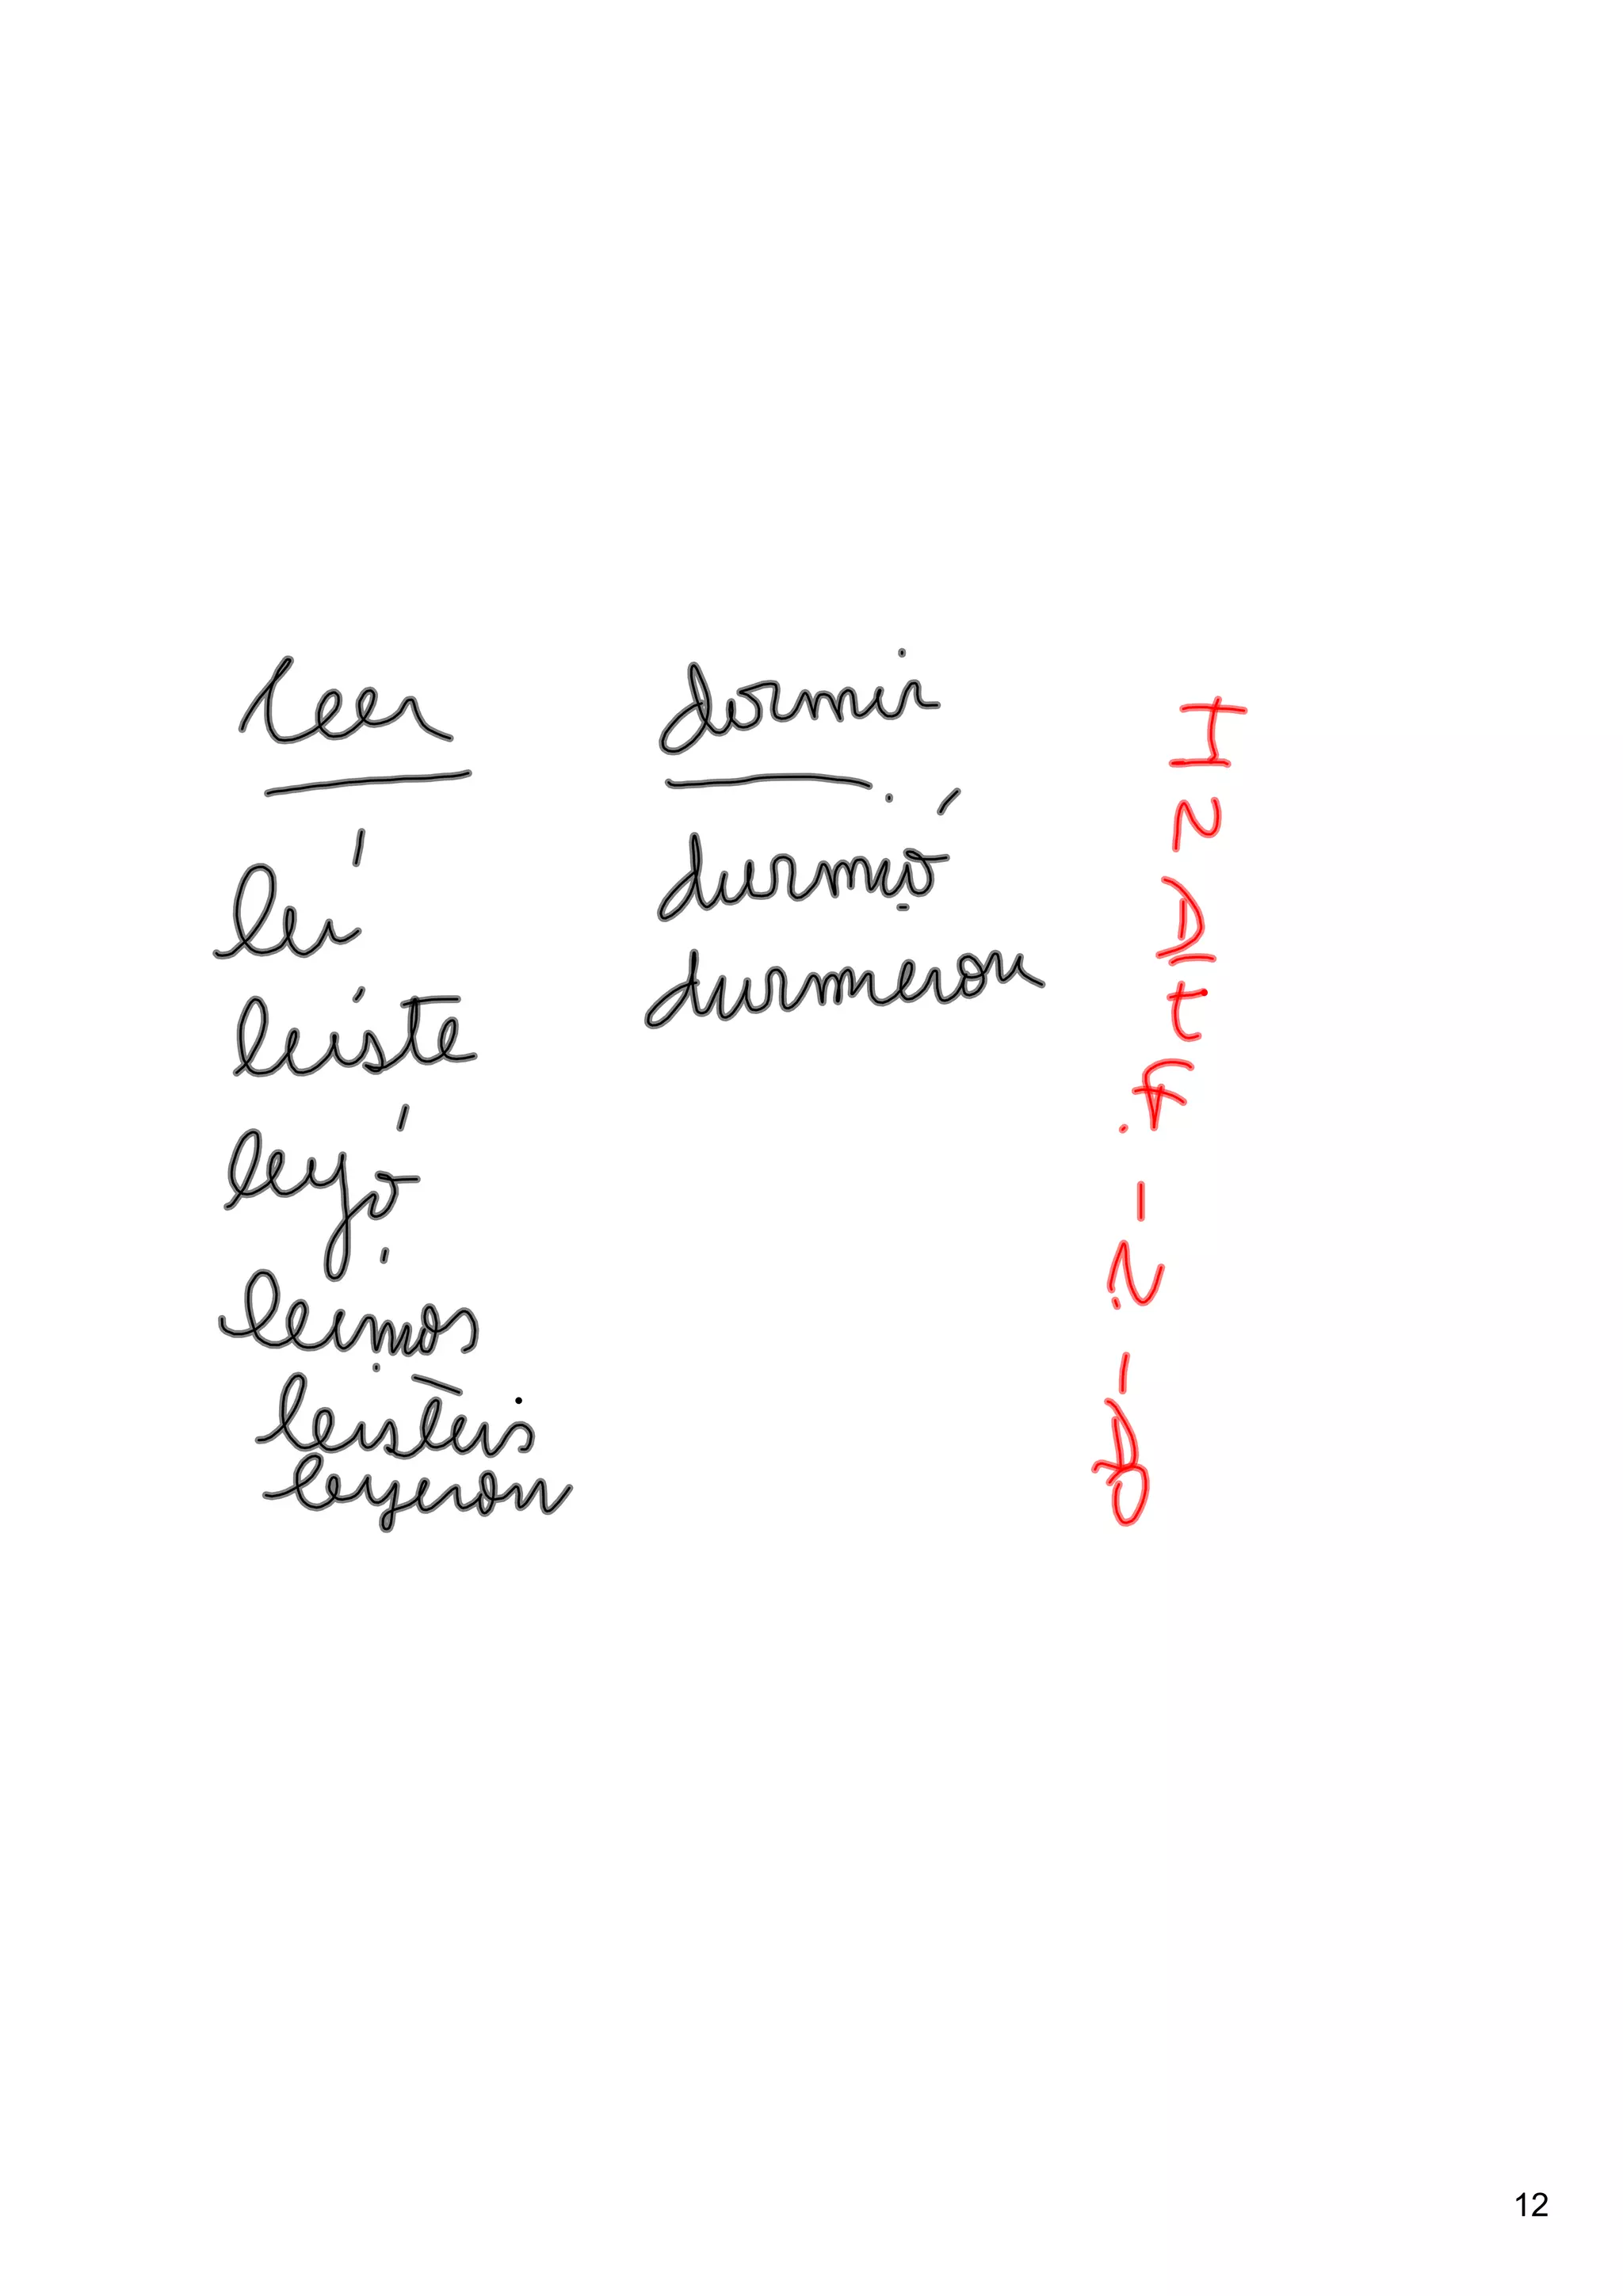 leer
leí
leíste
leyó
leímos
leisteis
leyeron
dormir
durmió
durmieron
INDEFINIDO
12